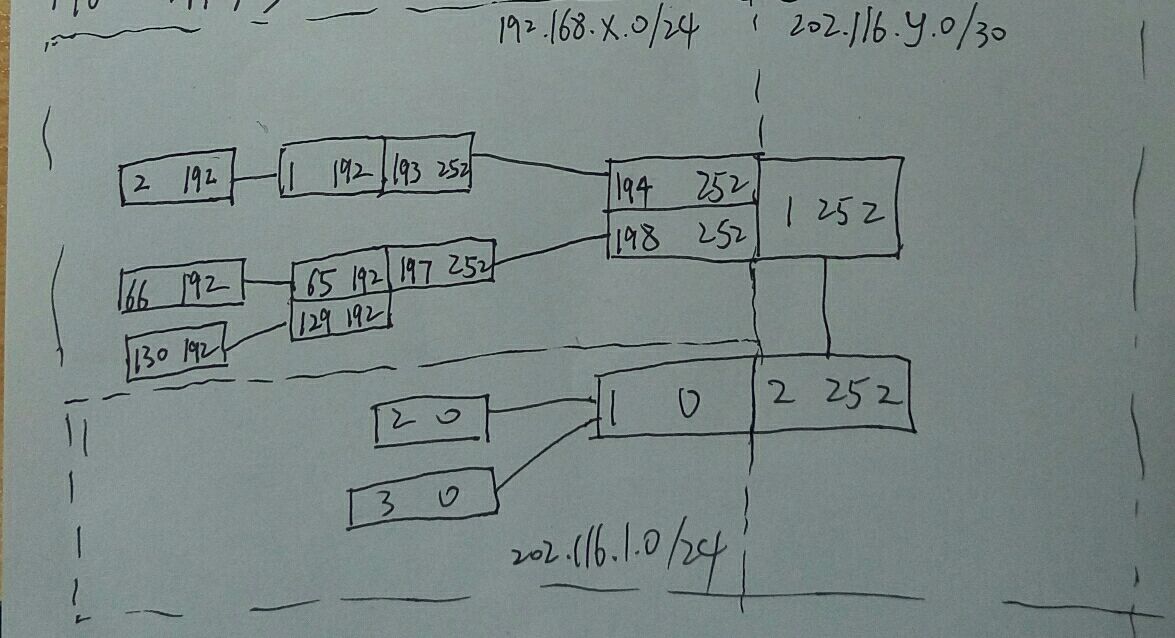 192.168.x.0/24
202.116.y.0/30
2 192
1 192
193 252
194 252
1 252
198 252
66 192
65 192
197 252
129 192
130 192
1 0
2 252
2 0
3 0
202.116.1.0/24